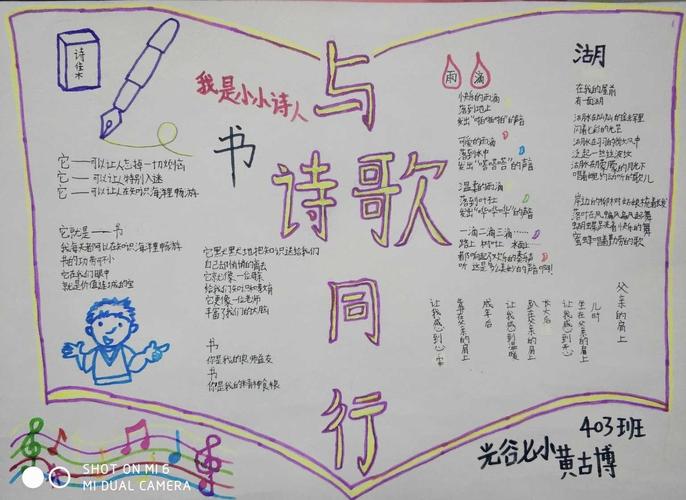 与
诗歌
同
行
诗佳木
我是小小诗人
书
它——可以让人忘掉一切烦恼
它——可以让人特别入迷
它——可以让人在知识海洋里畅游
它就是——书
我每天都可以在知识海洋里畅游
书的功劳可不小
它在我们眼中
就是价值连城的宝
它默默地把知识送给我们
自己却悄悄的离去
它就像一位母亲
它更像一位老师
丰富了我们的大脑
书
你是我的良师益友
书
你是我的精神食粮
雨滴
快乐的雨滴
落到地上
发出“啪啪啪”的声音
可爱的雨滴
落到水中
发出“嗒嗒嗒”的声音
温柔的雨滴
落到叶上
发出“哗哗哗”的声音
一滴二滴三滴……
路上 树叶上 水面上……
听 这是多么美妙的声音啊!
湖
在我的屋前
有一面湖
闪着七彩的光芒
父亲的肩上
儿时
坐在父亲的肩上
让我感到开心
长大后
趴在父亲的肩上
让我感到温暖
成年后
靠在父亲的肩上
让我感到心安
403班
光谷七小黄古博
SHOT ON MI 6
MI DUAL CAMERA